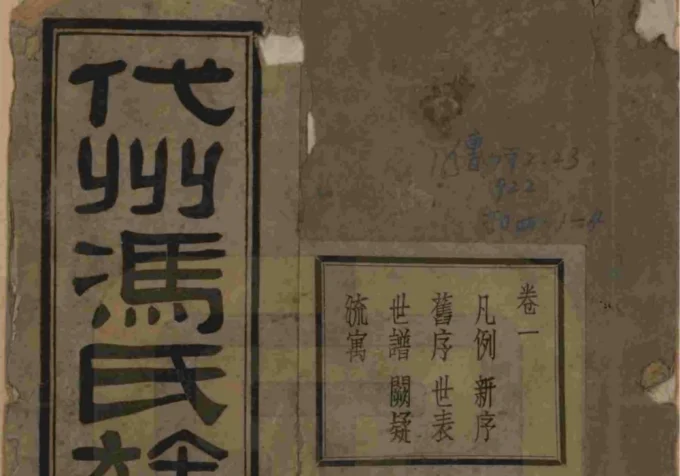 代州馮氏族
卷一
凡例 新序
舊序 世表
世譜 闕疑
流寓
922